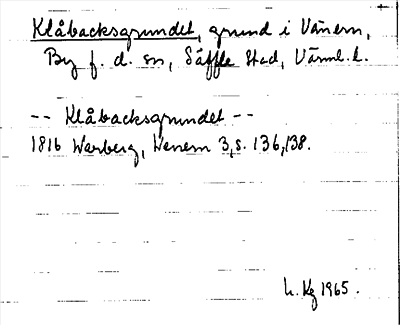 Klåbacksgrundet, grund i Vänern,
By f. d. sn, Säffle stad, Värml. l.
-- Klåbacksgrundet --
1816 Warberg, Wenern 3, s. 136, 138.
L. Kg 1965.